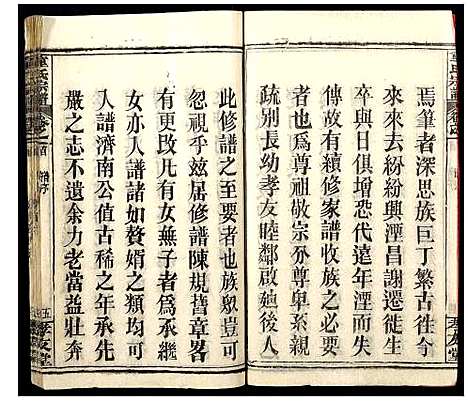 焉筆者深思族巨丁繁古徃今
來來去紛紛興湮昌謝遷徙生
卒與日俱增恐代遠年湮而失
傳故有續修家譜收族之必要
者也為尊祖敬宗分尊卑系親
疏別長幼孝友睦鄰啟廸後人
此修譜之至要者也族眾豈可
忽視乎玆居修譜陳規舊章畧
有更改凡有女無子者為承繼
女亦人譜諸如贅婿之類均可
人譜濟南公值古稀之年承先
嚴之志不遺余力老當益壯奔
童氏宗譜
卷首
譜序
五
孝友堂